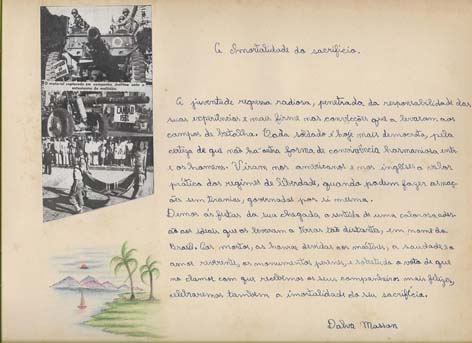 A Imortalidade do sacrifício.
O material capturado
CANHÃO
A juventude regressa radiosa, penetrada da responsabilidade das
suas experiencias e mais firme nas convicções que a levaram aos
campos de batalha. Cada soldado é hoje mais democrata, pela
certeza de que não há outra forma de convivência harmoniosa entr
e os homens. Viram nos americanos e nos inglêses o valor
prático dos regimes de liberdade, quando podem fazer
sem tiranias, governados por si mesma.
Demos ás festas da sua chegada o sentido de uma
ção aos ideais que os levaram a terras tão distantes, em nome do
Brasil. Aos mortos, as honras devidas aos mártires, a saudade do
amor reverente, os monumentos perenes, e sobretudo o voto de que
no clamor com que recebemos os seus companheiros mais felizes,
celebraremos tambem a imortalidade do seu sacrificio.
Dalva Masson